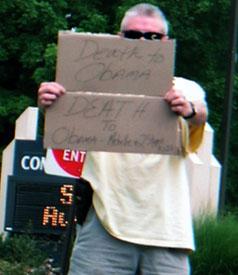 Death to
Obama
DEATH
To
Obama -
CO
ENT
S